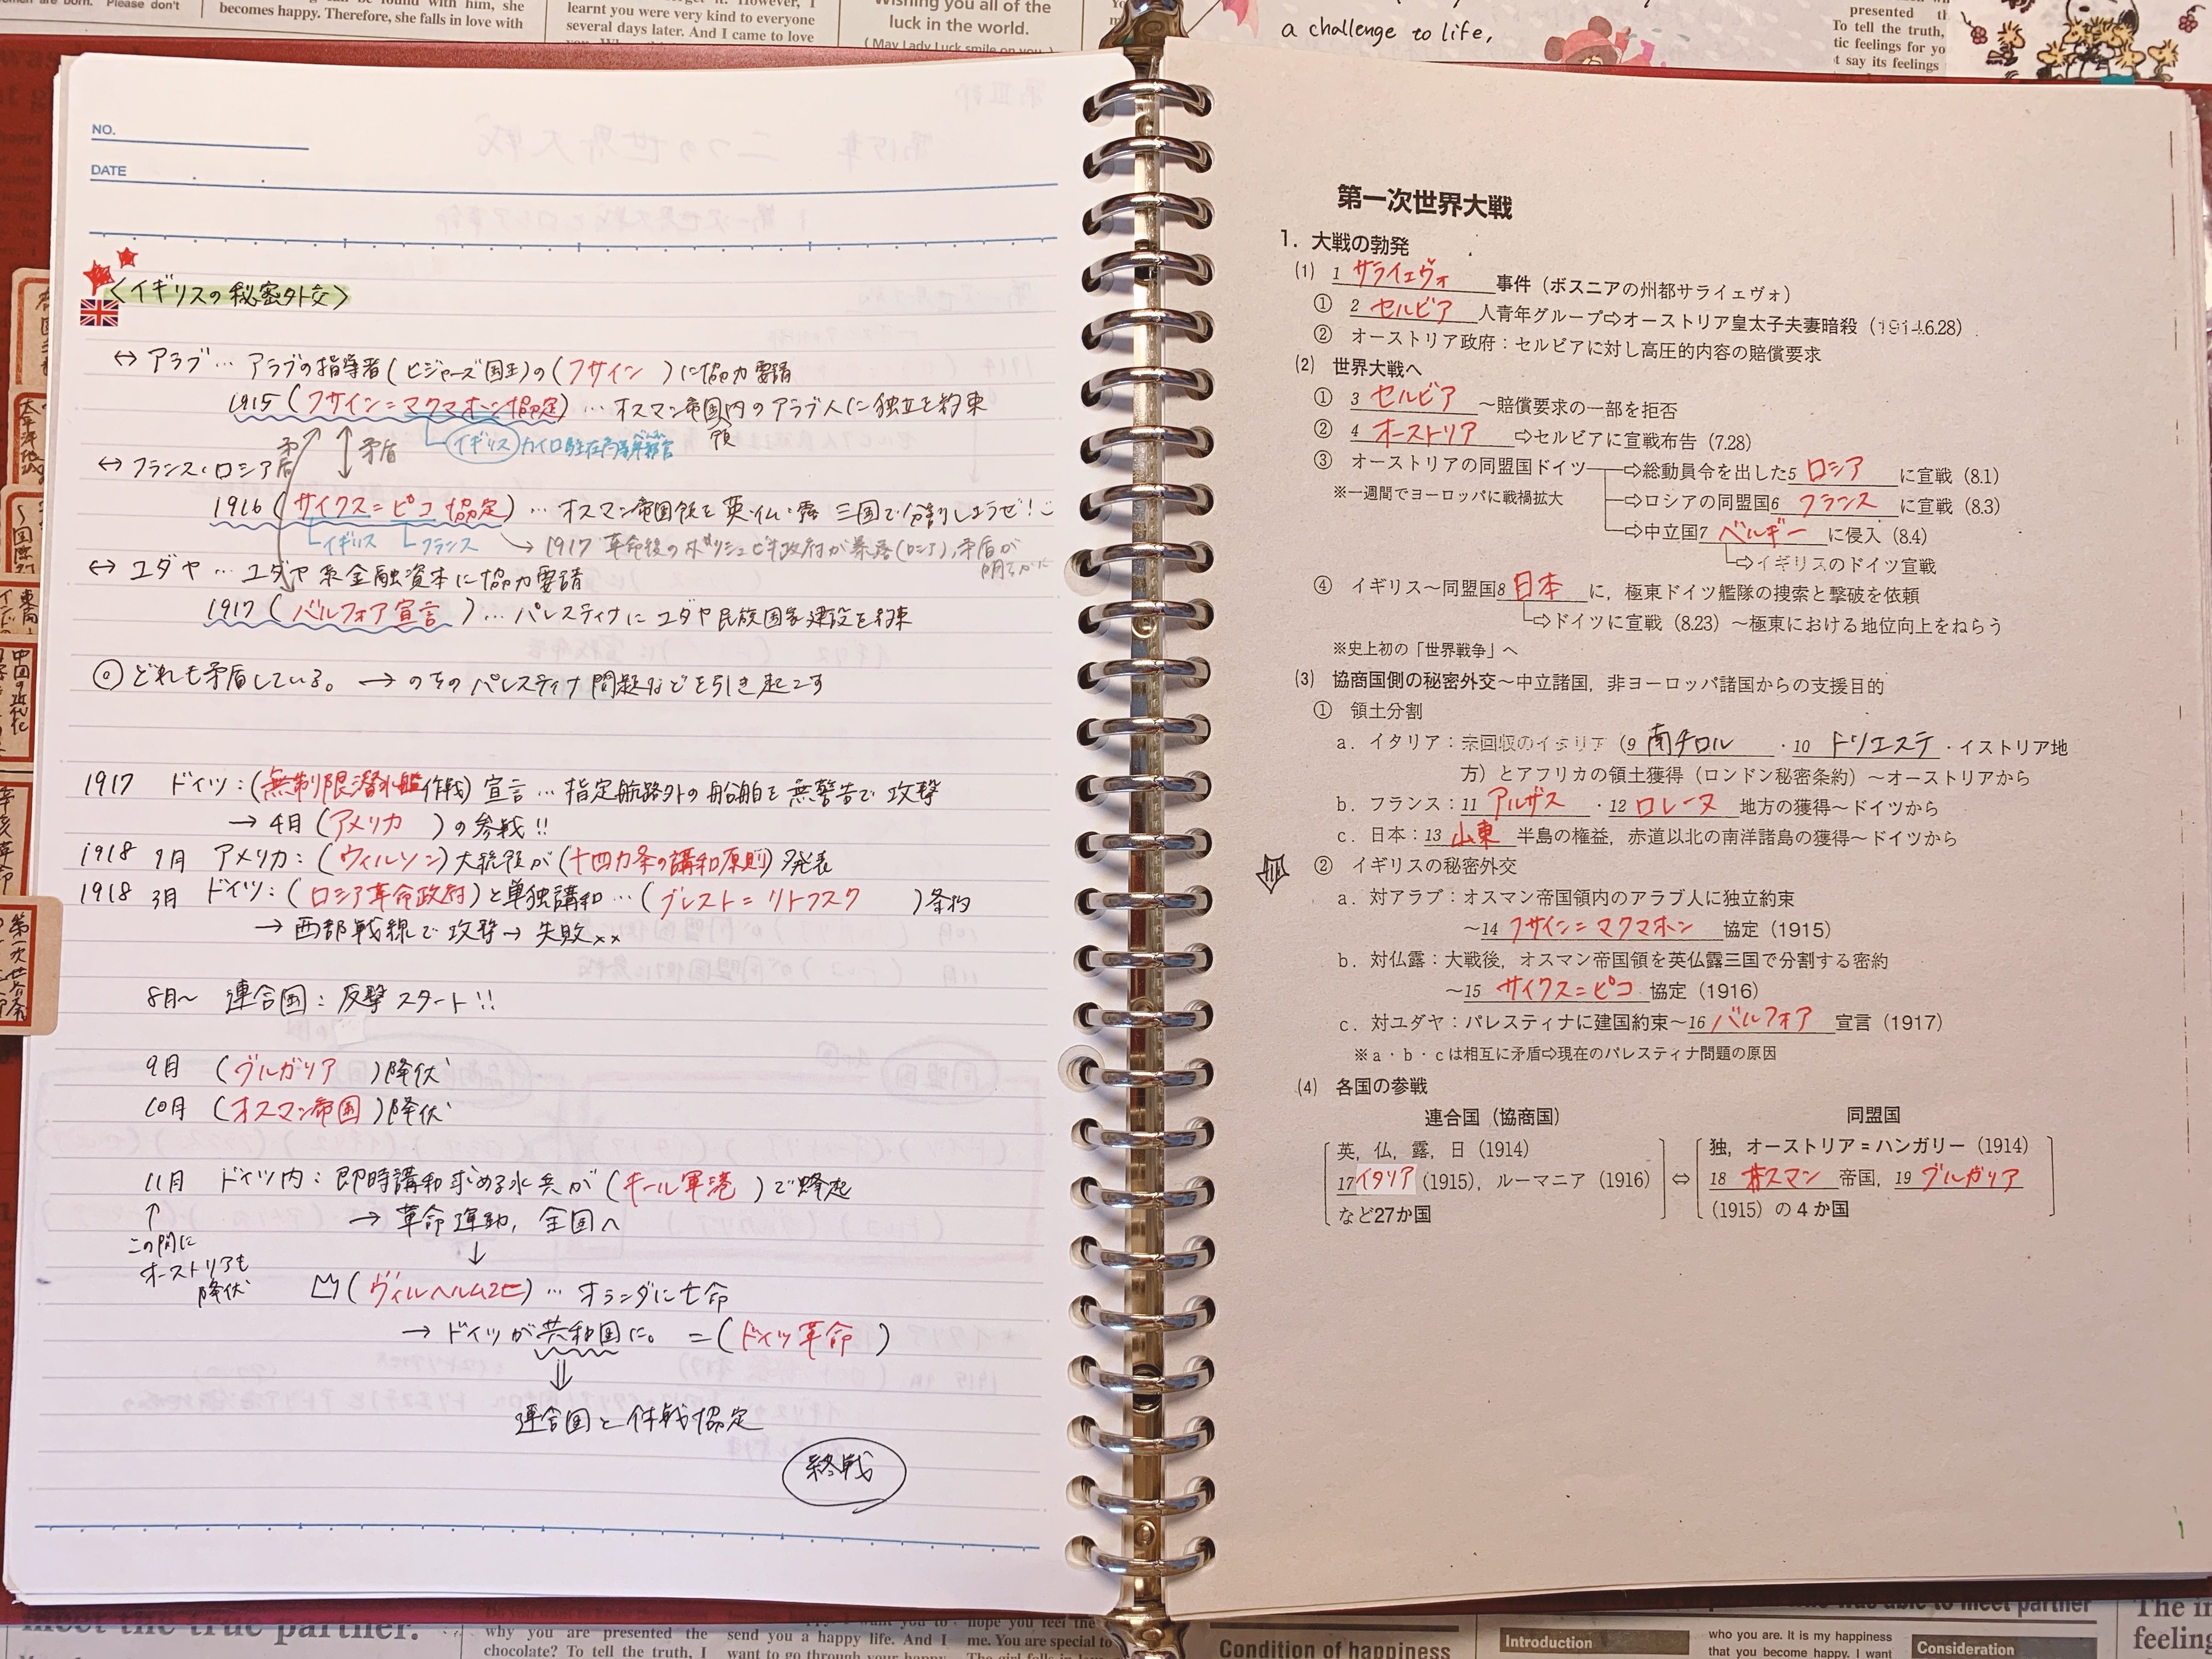 becomes happy. Therefore, she falls in love with
learnt you were very kind to everyone
several days later. And I came to love
luck in the world.
( May Lady Luck smile on you. )
a challenge to life,
presented
To tell the truth,
tic feelings for yo
t say its feelings
NO.
DATE
〈イギリスの秘密外交〉
↔ アラブ… アラブの指導者(ヒジャーズ国王)の(フサイン)に協力要請
1915(フサイン=マクマホン協定)… オスマン帝国内のアラブ人に独立を約束
領
矛盾
矛盾
イギリス カイロ駐在高等弁務官
↔ フランス・ロシア
1916(サイクス=ピコ協定)… オスマン帝国領を英・仏・露 三国で分割しようぜ!
イギリス フランス → 1917 革命後のボリシェビキ政府が暴露(ロシア),矛盾が
明らかに
↔ ユダヤ… ユダヤ系金融資本に協力要請
1917(バルフォア宣言)… パレスティナにユダヤ民族国家建設を約束
◎どれも矛盾している。→ のちのパレスティナ問題などを引き起こす
1917 ドイツ:(無制限潜水艦作戦)宣言… 指定航路外の船舶を無警告で攻撃
→ 4月(アメリカ)の参戦!!
1918 1月 アメリカ:(ウィルソン)大統領が(十四カ条の講和原則)発表
1918 3月 ドイツ:(ロシア革命政府)と単独講和…(ブレスト=リトフスク)条約
→ 西部戦線で攻撃→ 失敗××
8月〜 連合国:反撃スタート!!
9月 (ブルガリア)降伏
10月 (オスマン帝国)降伏
11月 ドイツ内:即時講和求める水兵が(キール軍港)で蜂起
→ 革命運動,全国へ
↑
この間に
オーストリアも
降伏
↓
(ヴィルヘルム2世)… オランダに亡命
→ ドイツが共和国に。=(ドイツ革命)
⇓
連合国と休戦協定
終戦
第一次世界大戦
1. 大戦の勃発
(1) 1 サライェヴォ 事件(ボスニアの州都サライェヴォ)
① 2 セルビア 人青年グループ⇨オーストリア皇太子夫妻暗殺(1914.6.28)
② オーストリア政府:セルビアに対し高圧的内容の賠償要求
(2) 世界大戦へ
① 3 セルビア 〜賠償要求の一部を拒否
② 4 オーストリア ⇨セルビアに宣戦布告(7.28)
③ オーストリアの同盟国ドイツ⇨総動員令を出した5 ロシア に宣戦(8.1)
※一週間でヨーロッパに戦禍拡大 ⇨ロシアの同盟国6 フランス に宣戦(8.3)
⇨中立国7 ベルギー に侵入(8.4)
⇨イギリスのドイツ宣戦
④ イギリス〜同盟国8 日本 に,極東ドイツ艦隊の捜索と撃破を依頼
⇨ドイツに宣戦(8.23)〜極東における地位向上をねらう
※史上初の「世界戦争」へ
(3) 協商国側の秘密外交〜中立諸国,非ヨーロッパ諸国からの支援目的
① 領土分割
a. イタリア:未回収のイタリア(9 南チロル ・10 トリエステ ・イストリア地
方)とアフリカの領土獲得(ロンドン秘密条約)〜オーストリアから
b. フランス:11 アルザス ・12 ロレーヌ 地方の獲得〜ドイツから
c. 日本:13 山東 半島の権益,赤道以北の南洋諸島の獲得〜ドイツから
② イギリスの秘密外交
a. 対アラブ:オスマン帝国領内のアラブ人に独立約束
〜14 フサイン=マクマホン 協定(1915)
b. 対仏露:大戦後,オスマン帝国領を英仏露三国で分割する密約
〜15 サイクス=ピコ 協定(1916)
c. 対ユダヤ:パレスティナに建国約束〜16 バルフォア 宣言(1917)
※a・b・cは相互に矛盾⇨現在のパレスティナ問題の原因
(4) 各国の参戦
連合国(協商国) 同盟国
英,仏,露,日(1914) 独,オーストリア=ハンガリー(1914)
17イタリア(1915),ルーマニア(1916) ⇔ 18 オスマン 帝国,19 ブルガリア
など27か国 (1915)の4か国
1
meet the true partner.
why you are presented the
chocolate? To tell the truth, I
send you a happy life. And I
hope you feel the
me. You are special to
Condition of happiness
Introduction
who you are. It is my happiness
that you become happy. I want
Consideration
The in
feeling